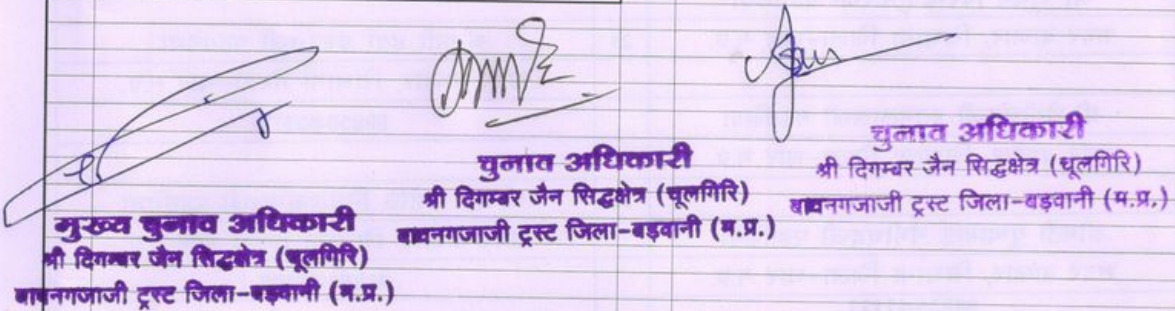 मुख्य चुनाव अधिकारी
श्री दिगम्बर जैन सिद्धक्षेत्र (चूलगिरि)
बावनगजाजी ट्रस्ट जिला-बड़वानी (म.प्र.)
चुनाव अधिकारी
श्री दिगम्बर जैन सिद्धक्षेत्र (चूलगिरि)
बावनगजाजी ट्रस्ट जिला-बड़वानी (म.प्र.)
चुनाव अधिकारी
श्री दिगम्बर जैन सिद्धक्षेत्र (चूलगिरि)
बावनगजाजी ट्रस्ट जिला-बड़वानी (म.प्र.)